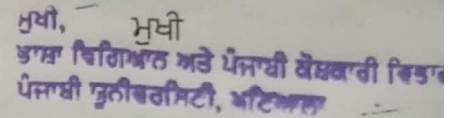 ਮੁਖੀ, ਮੁਖੀ
ਭਾਸ਼ਾ ਵਿਗਿਆਨ ਅਤੇ ਪੰਜਾਬੀ ਕੋਸ਼ਕਾਰੀ ਵਿਭਾਗ
ਪੰਜਾਬੀ ਯੂਨੀਵਰਸਿਟੀ, ਪਟਿਆਲਾ